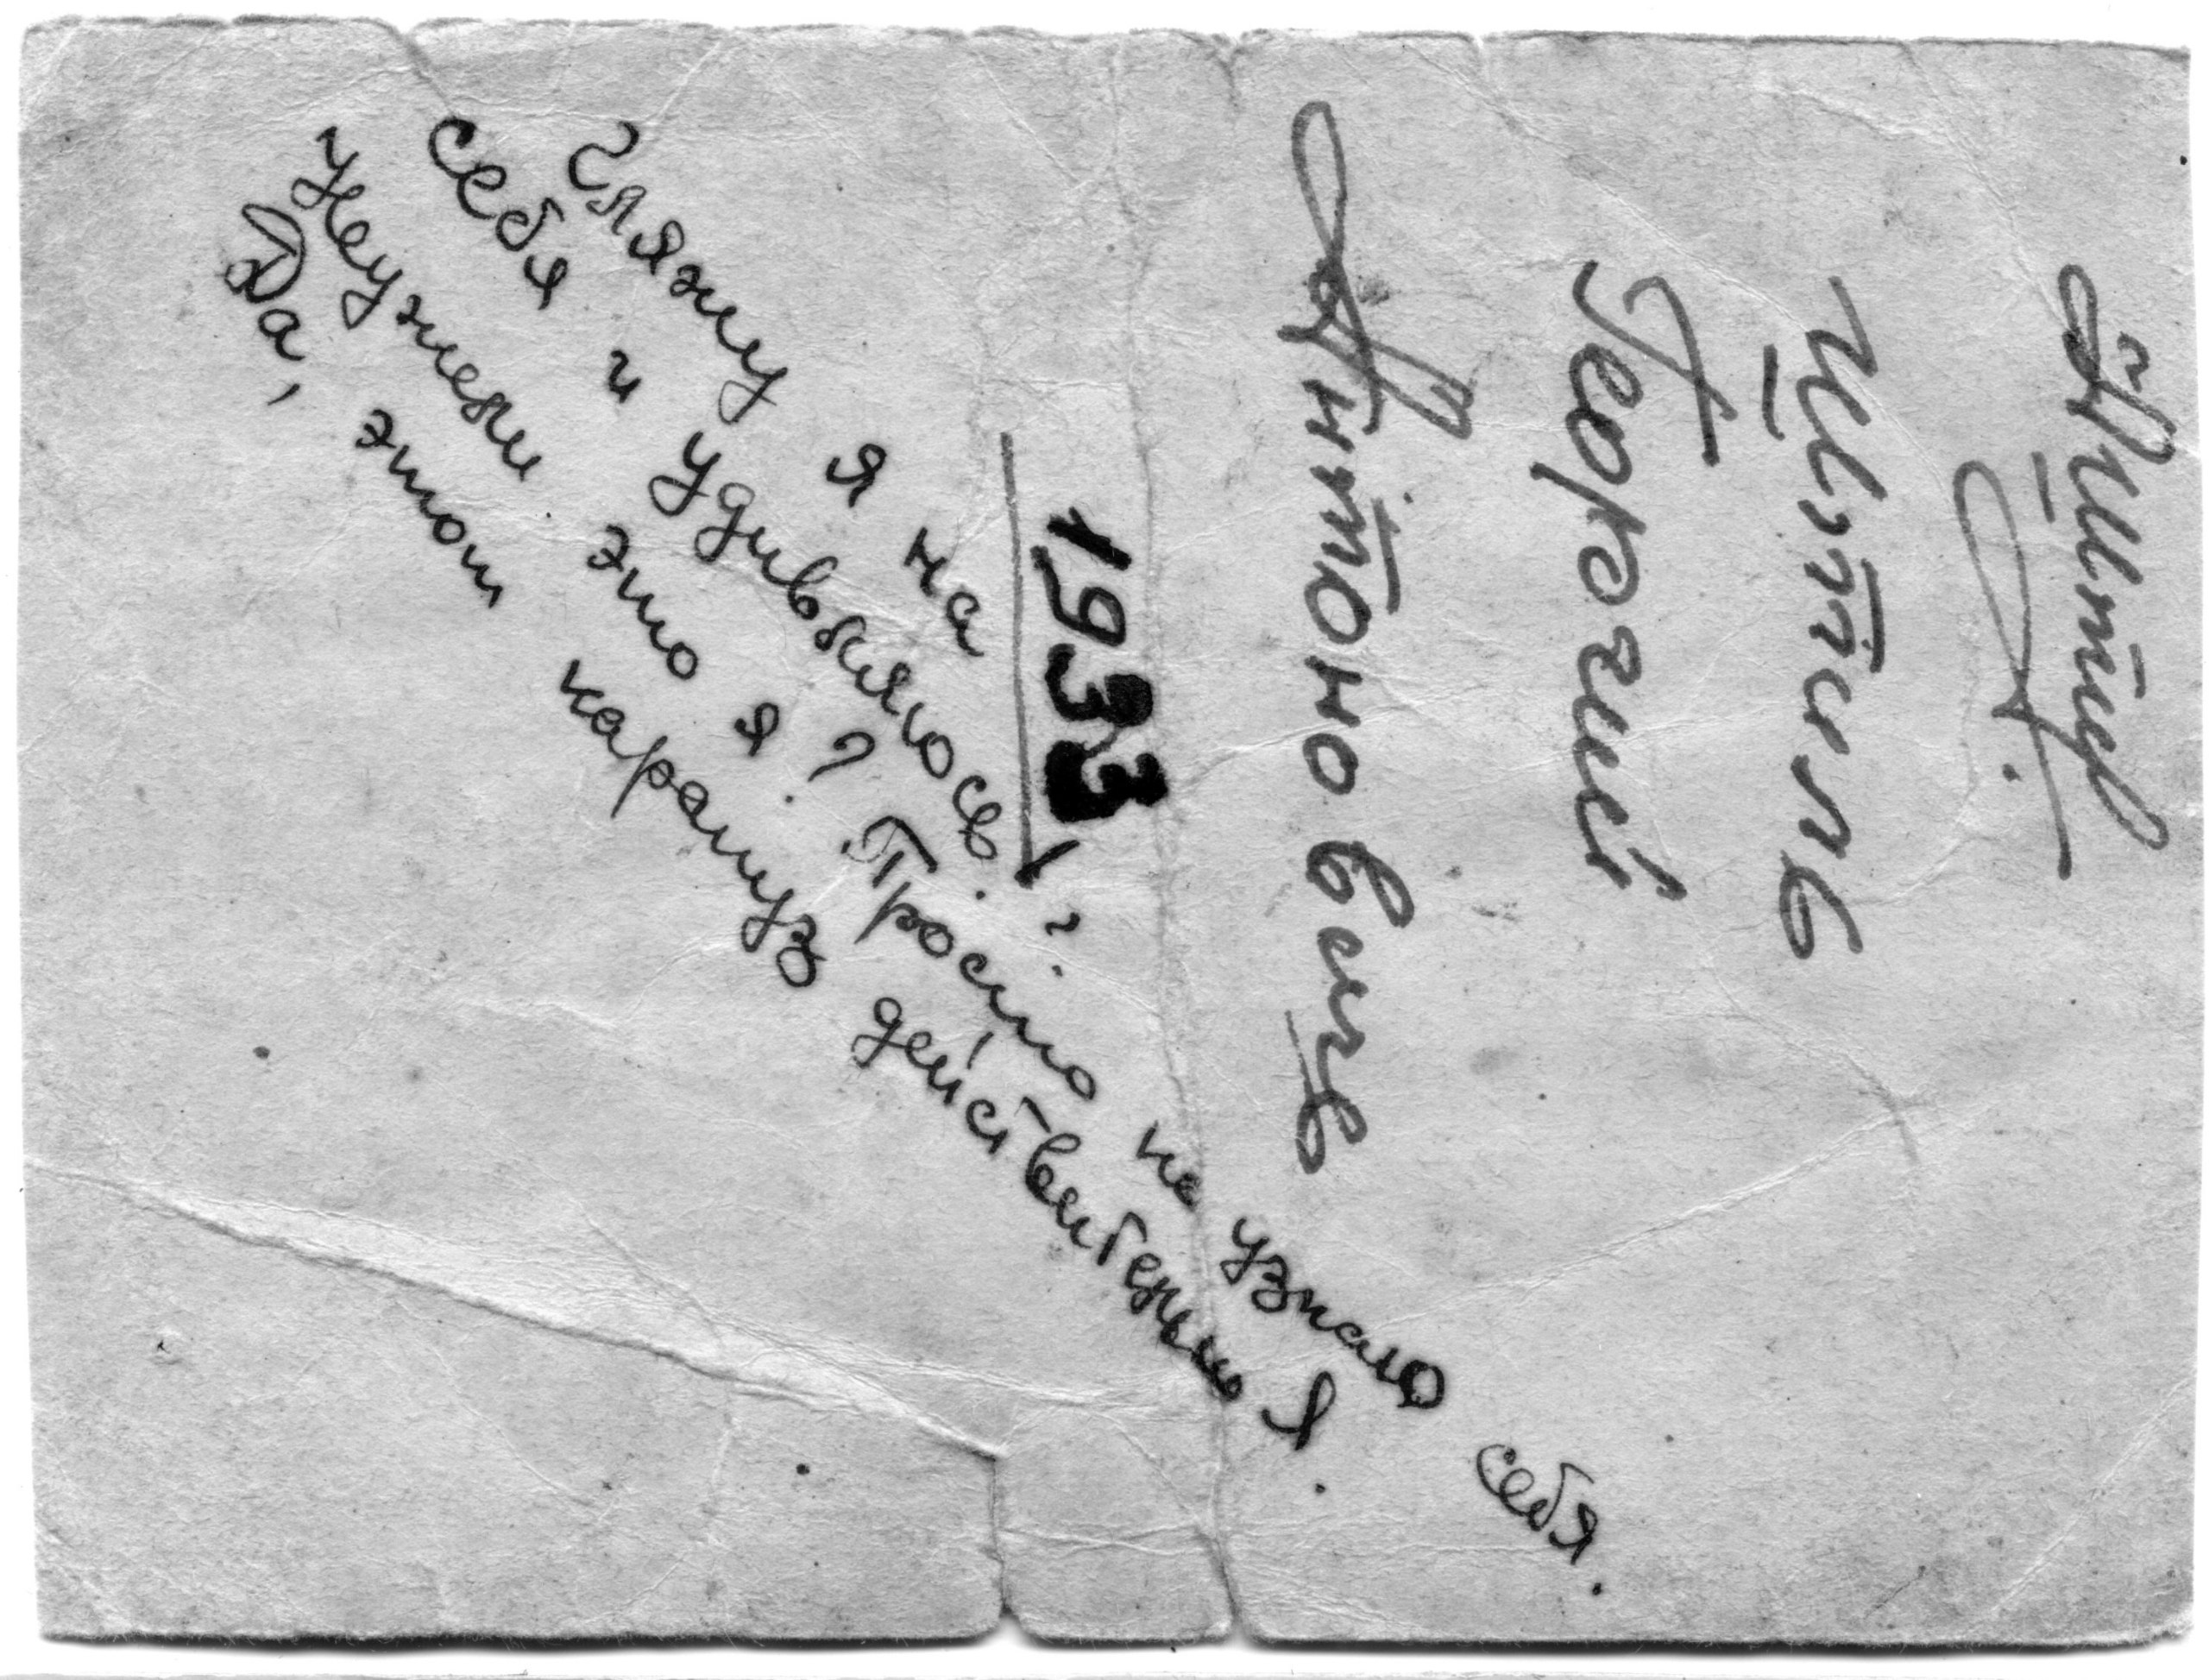 Георгий
Антоновичь
1933 г.
Гляжу я на
себя и удивляюсь.
Неужели это я? Просто не узнаю себя.
Да, этот карапуз действительно Я.